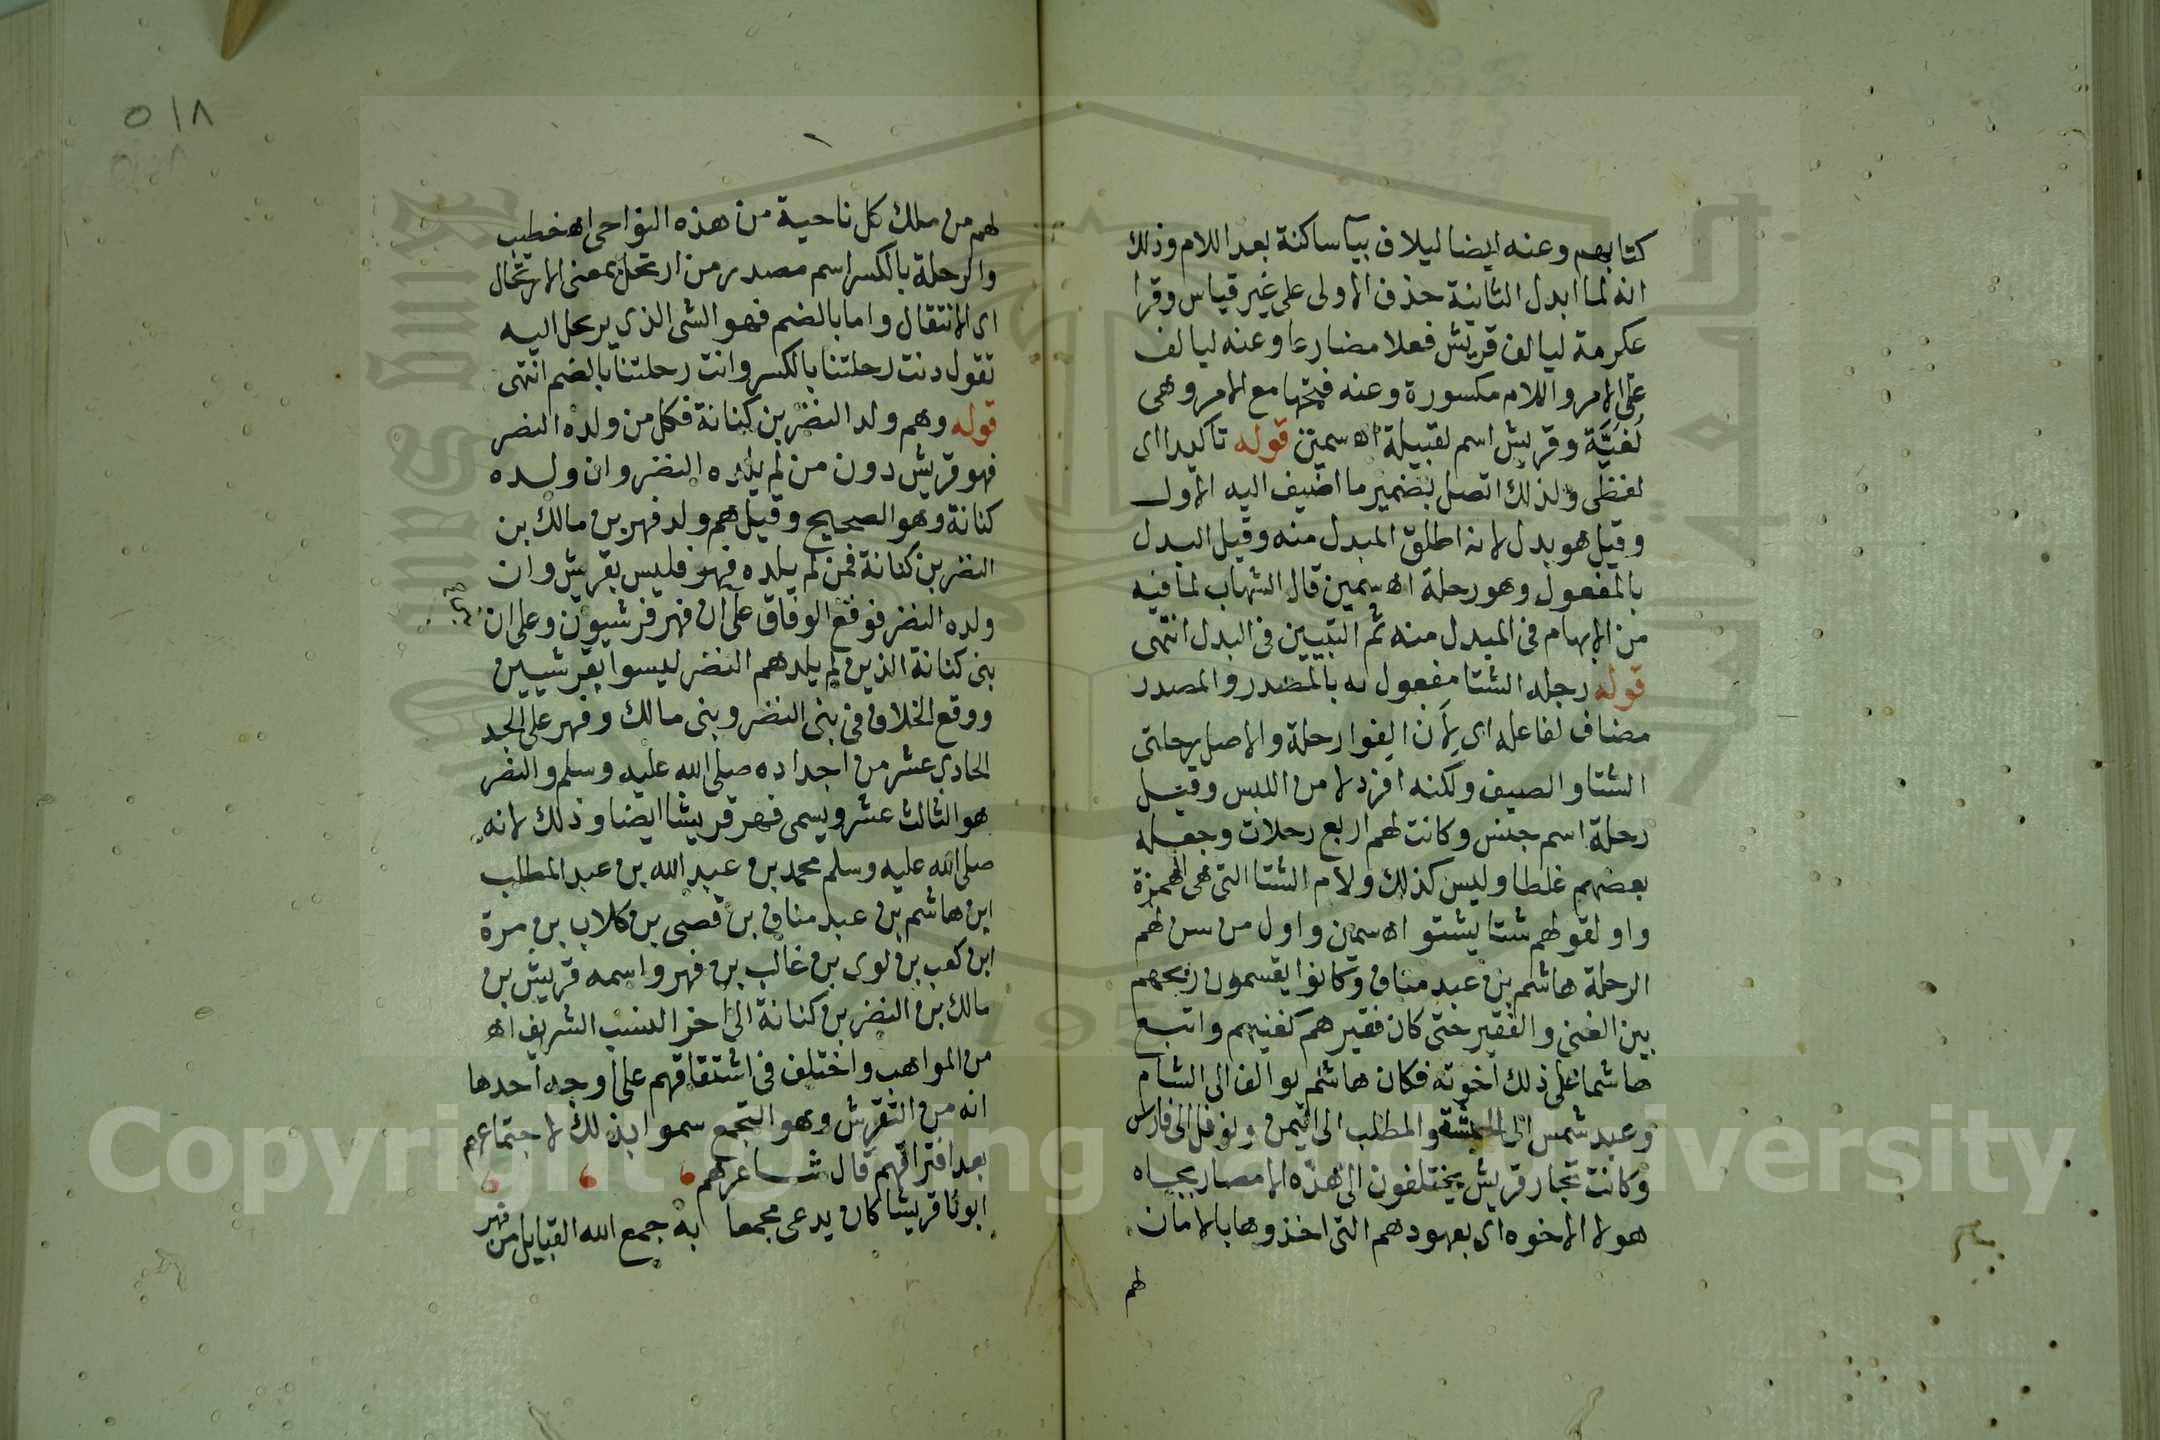 كتابهم وعنه ايضا ليلاف بيآ ساكنة بعد اللام وذلك
انه لما ابدل الثانية حذف الاولى على غير قياس وقرا
عكرمة ليالف قريش فعلا مضارعا وعنه ليالف
على الامر واللام مكسورة وعنه فتحها مع الامر وهى
لُغَيَّة وقريش اسم لقبيلة اه سمين قوله تاكيدا اى
لفظى ولذلك اتصل بضمير ما اضيف اليه الاول
وقيل هو بدل لانه اطلق المبدل منه وقيل البدل
بالمفعول وهو رحلة اه سمين قال الشهاب لما فيه
من الابهام فى المبدل منه ثم التبيين فى البدل انتهى
قوله رحلة الشتا مفعول به بالمصدر والمصدر
مضاف لفاعله اى لِأَن الِفوا رحلة والاصل رحلتى
الشتا والصيف ولكنه افرد لامن اللبس وقيل
رحلة اسم جنس وكانت لهم اربع رحلات وجعله
بعضهم غلطا وليس كذلك ولام الشتا التى هى الهمزة
واو لقولهم شتا يشتو اه سمين واول من سن لهم
الرحلة هاشم بن عبد مناف وكانوا يقسمون ربحهم
بين الغنى والفقير حتى كان فقيرهم كغنيهم واتبع
هاشما على ذلك اخوته فكان هاشم يوالف الى الشام
وعبد شمس الى الحبشة والمطلب الى اليمن ونوفل الى فارس
وكانت تجار قريش يختلفون الى هذه الامصار بجاه
هولا الاخوه اى بعهودهم التى اخذوها بالامان
لهم
٥١٨
لهم من ملك كل ناحية من هذه النواحى اه خطيب
والرحلة بالكسر اسم مصدر من ارتحل بمعنى الارتحال
اى الانتقال واما بالضم فهو الشى الذى يرحل اليه
تقول دنت رحلتنا بالكسر وانت رحلتنا بالضم انتهى
قوله وهم ولد النضر بن كنانة فكل من ولده النضر
فهو قريش دون من لم يلده النضر وان ولده
كنانة وهو الصحيح وقيل هم ولد فهر بن مالك بن
النضر بن كنانة فمن لم يلده فهر فليس بقريش وان
ولده النضر فوقع الوفاق على ان فهر قرشيون وعلى ان
بنى كنانة الذين لم يلدهم النضر ليسوا بقرشيين
ووقع الخلاف فى بنى النضر وبنى مالك وفهر على الجد
الحادى عشر من اجداده صلى الله عليه وسلم والنضر
هو الثالث عشر ويسمى فهر قريشا ايضا وذلك لانه
صلى الله عليه وسلم محمد بن عبد الله بن عبد المطلب
ابن هاشم بن عبد مناف بن قصى بن كلاب بن مرة
ابن كعب بن لوى بن غالب بن فهر واسمه قريش بن
مالك بن النضر بن كنانة الى اخر النسب الشريف اه
من المواهب واختلف فى اشتقاقهم على اوجه احدها
انه من التقرش وهو التجمع سموا بذلك لاجتماعهم
بعد افتراقهم قال شاعرهم
ابونا قريشا كان يدعى مجمعا به جمع الله القبايل من فهر
Copyright © King Saud University